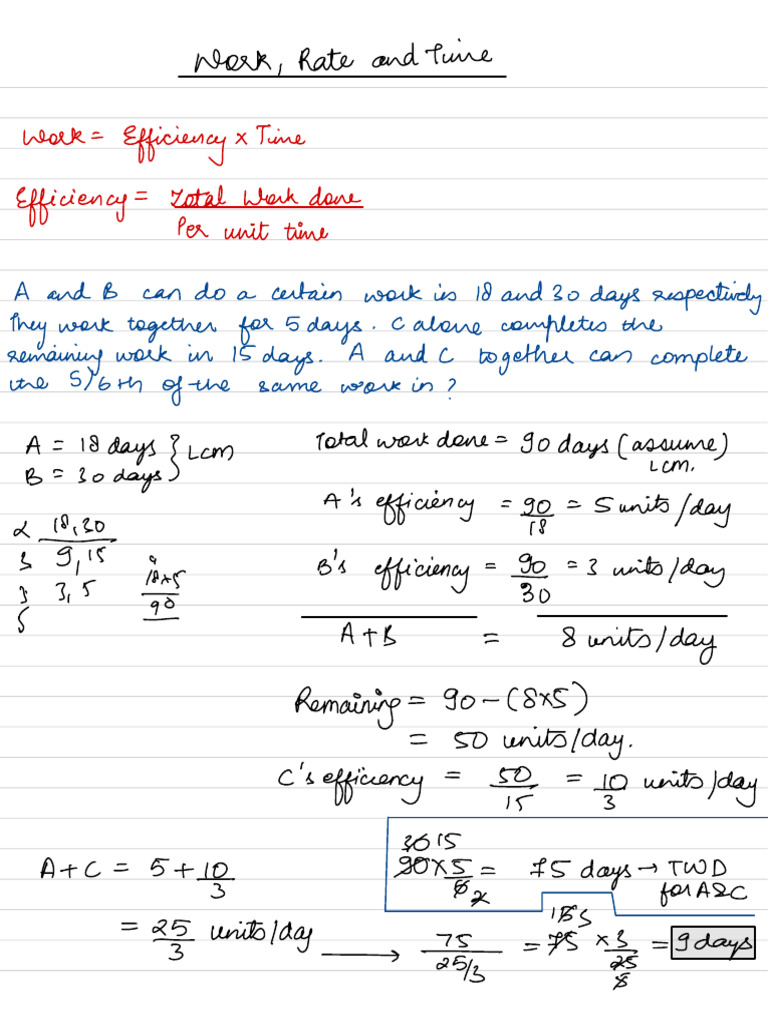 Work, Rate and Time
Work = Efficiency x Time
Efficiency = Total Work done
Per unit time
A and B can do a certain work in 18 and 30 days respectively
They work together for 5 days. C alone completes the
remaining work in 15 days. A and C together can complete
the 5/6th of the same work in?
A = 18 days } LCM
B = 30 days
2 18,30
3 9,15
3 3,5
5
18x5
90
Total work done = 90 days (assume)
LCM.
A's efficiency = 90/18 = 5 units/day
B's efficiency = 90/30 = 3 units/day
A+B = 8 units/day
Remaining = 90-(8x5)
= 50 units/day.
C's efficiency = 50/15 = 10/3 units/day
30 15
90x5/6 2 = 75 days → TWD
for A&C
A+C = 5+10/3
= 25/3 units/day
→ 75/25/3 = 75 x 3/25 = 9 days